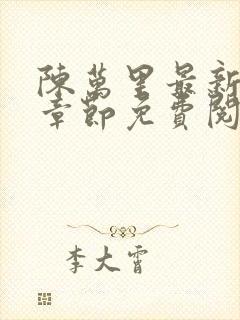 陳萬里最新
章節免費閱
李大霄